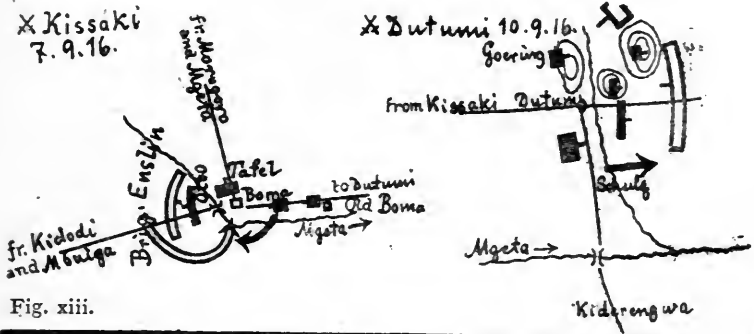 X Kissaki
7.9.16.
fr. Morogoro
and Mgeta
Brig. Enslin
Otto
Tafel
Boma
to Dutumi
Old Boma
Mgeta →
fr. Kidodi
and Mbulga
Fig. xiii.
X Dutumi 10.9.16.
Goering
from Kissaki Dutumi
Schulz
Mgeta →
Kiderengwa